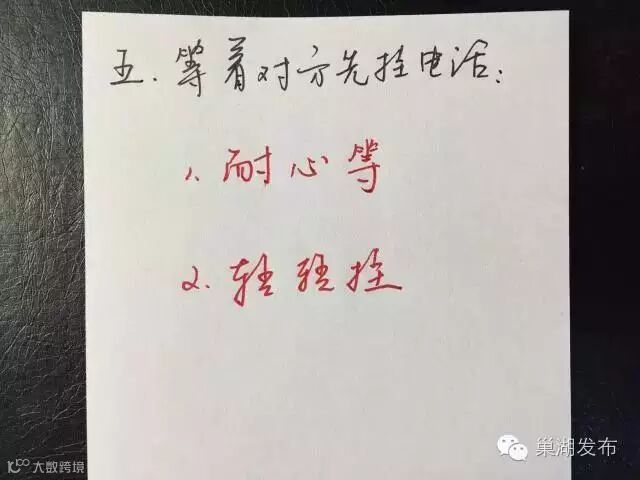 五.等着对方先挂电话:
1.耐心等
2.轻轻挂
巢湖发布
大数跨境